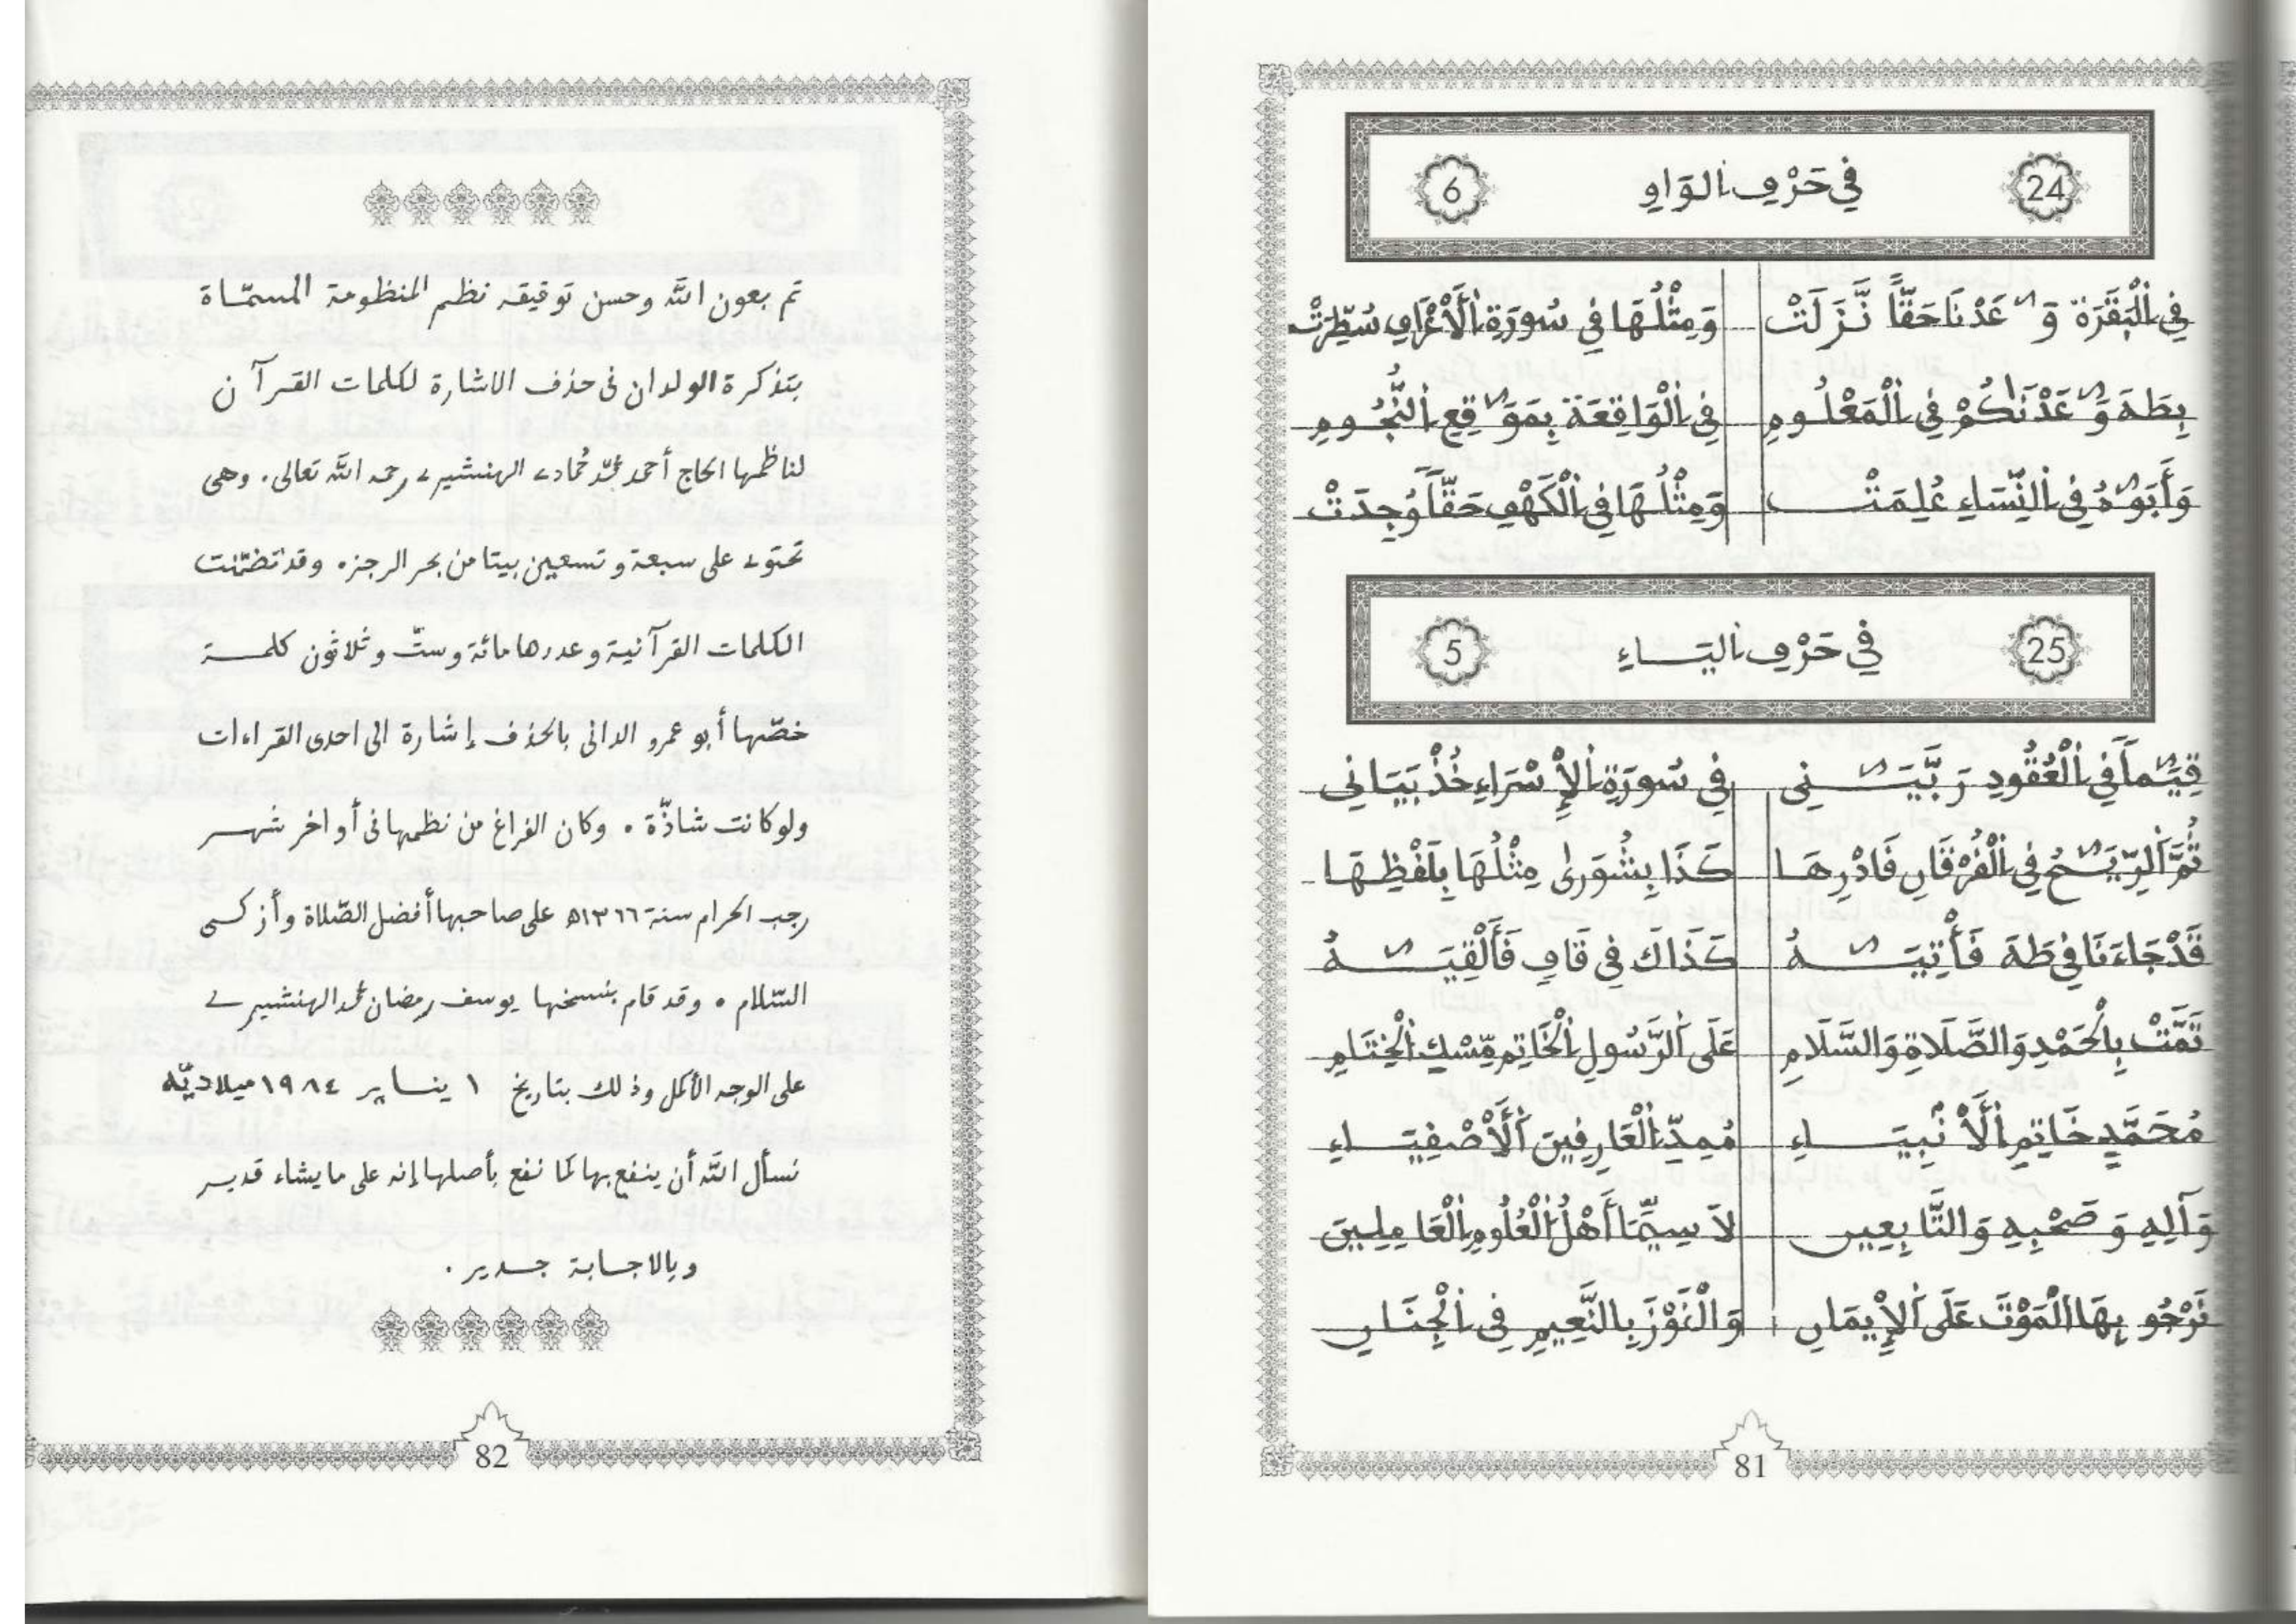 24 فِي حَرْفِ الْوَاوِ 6
فِي الْبَقَرَةِ وَعَدْنَا حَقّاً نَّزَلَتْ وَمِثْلُهَا فِي سُورَةِ الْأَعْرَافِ سُطِّرَتْ
بِطَهَ وَعَدْنَاكُمْ فِي الْمَعْلُومِ فِي الْوَاقِعَةِ بِمَوَقِعِ النُّجُومِ
وَأَبَوَهُ فِي النِّسَاءِ عُلِمَتْ وَمِثْلُهَا فِي الْكَهْفِ حَقّاً وُجِدَتْ
25 فِي حَرْفِ الْيَاءِ 5
قِيَماً فِي الْعُقُودِ رَبَّيَنِي فِي سُورَةِ الْإِسْرَاءِ خُذْ بَيَانِي
ثُمَّ الرِّيَحُ فِي الْفُرْقَانِ فَادْرِهَا كَذَا بِشُورَىٰ مِثْلُهَا بِلَفْظِهَا
قَدْ جَاءَنَا فِي طَهَ فَأْتِيَهُ كَذَاكَ فِي قَافِ فَأَلْقِيَهُ
تَمَّتْ بِالْحَمْدِ وَالصَّلَاةِ وَالسَّلَامِ عَلَى الرَّسُولِ الْخَاتِمِ مِّسْكِ الْخِتَامِ
مُحَمَّدٍ خَاتِمِ الْأَنْبِيَاءِ مُمِدِّ الْعَارِفِينَ الْأَصْفِيَاءِ
وَآلِهِ وَصَحْبِهِ وَالتَّابِعِين لَا سِيَّمَا أَهْلُ الْعُلُومِ الْعَامِلِينَ
نَرْجُو بِهَا الْمَوْتَ عَلَى الْإِيمَانِ وَالْفَوْزَ بِالنَّعِيمِ فِي الْجِنَانِ
81
تم بعون الله وحسن توفيقه نظم المنظومة المسمّاة
بتذكرة الولدان فى حذف الاشارة لكلمات القرآن
لناظمها الحاج أحمد محمّد حُمادى الهنشيرى رحمه الله تعالى. وهى
تحتوى على سبعة وتسعين بيتا من بحر الرجز. وقد تضمّنت
الكلمات القرآنية وعددها مائة وستّ وثلاثون كلمة
خصّها أبو عمرو الدانى بالحذف إشارة الى احدى القراءات
ولو كانت شاذّة. وكان الفراغ من نظمها فى أواخر شهر
رجب الحرام سنة ١٣٦٦ه على صاحبها أفضل الصّلاة وأزكى
السّلام. وقد قام بنسخها يوسف رمضان محمد الهنشيرى
على الوجه الأكمل وذلك بتاريخ ١ يناير ١٩٨٤ ميلاديّه
نسأل الله أن ينفع بها كما نفع بأصلها إنه على ما يشاء قدير
وبالاجابة جدير.
82